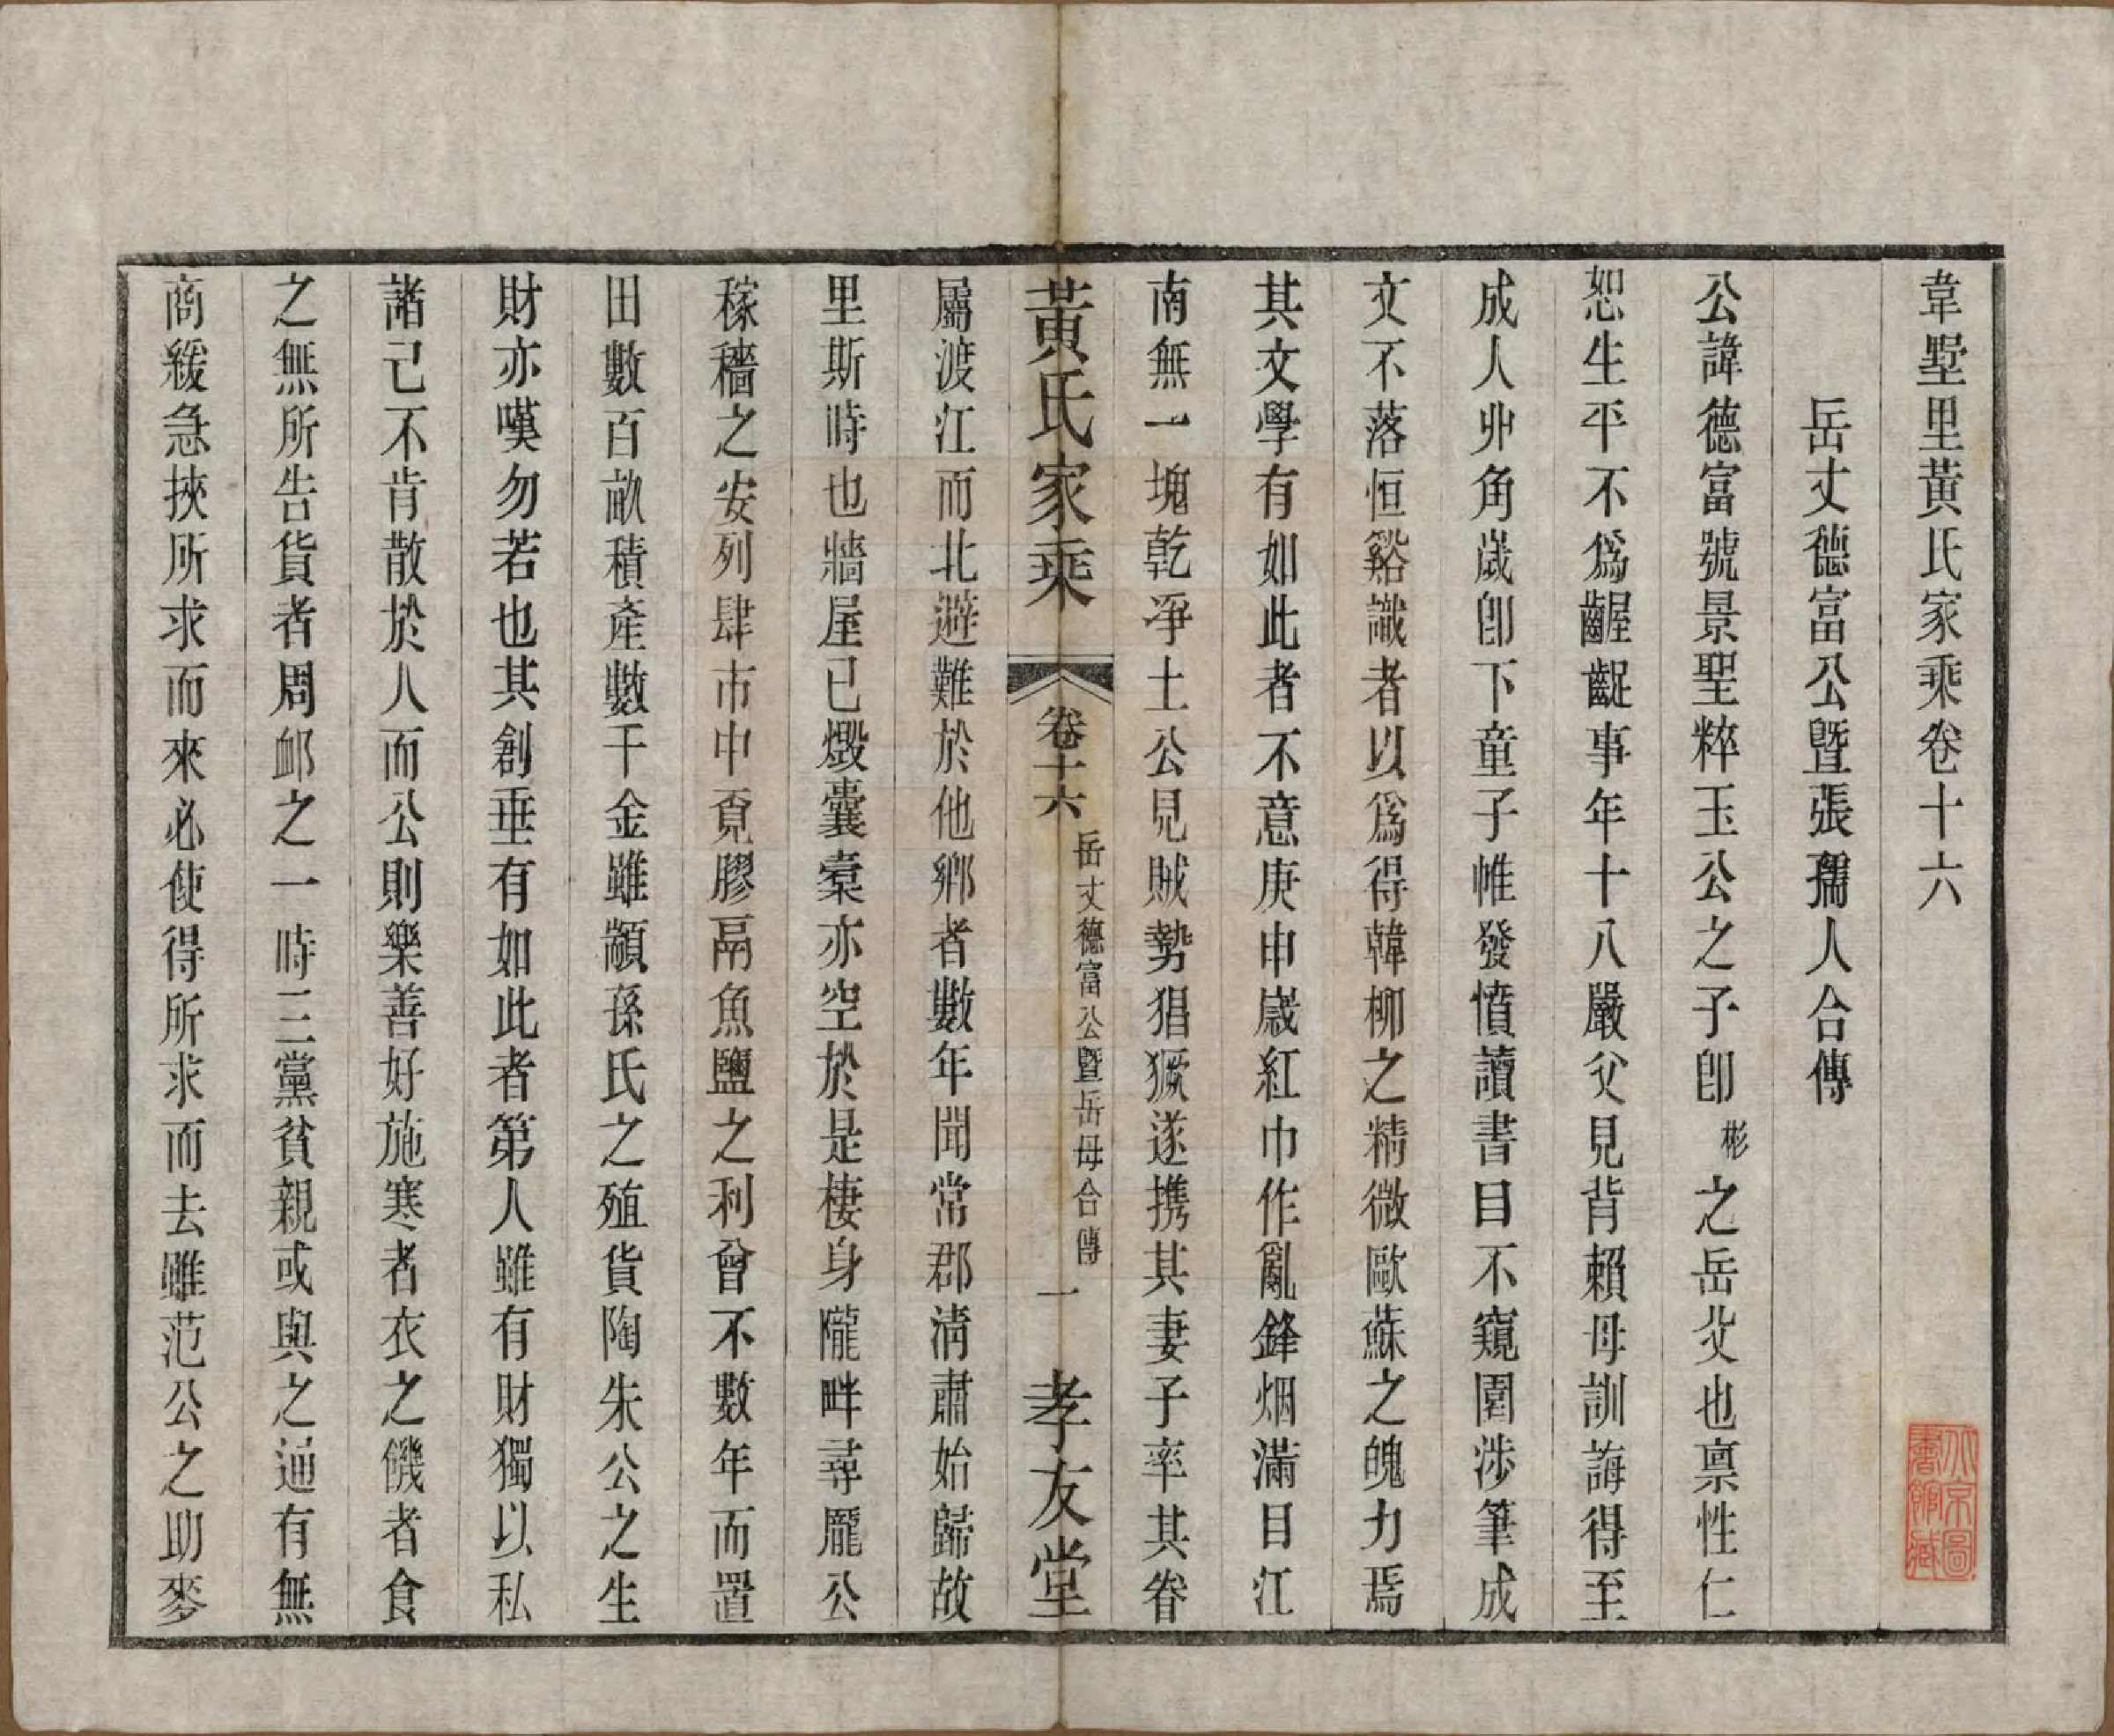 韋墅里黃氏家乘卷十六
岳丈德富公暨張孺人合傳
公諱德富號景聖粹玉公之子卽彬之岳父也稟性仁
恕生平不爲齷齪事年十八嚴父見背賴母訓誨得至
成人丱角歲卽下童子帷發憤讀書目不窺園涉筆成
文不落恒谿識者以爲得韓柳之精微歐蘇之魄力焉
其文學有如此者不意庚申歲紅巾作亂鋒烟滿目江
南無一塊乾淨土公見賊勢猖獗遂携其妻子率其眷
黃氏家乘 卷十六 岳丈德富公暨岳母合傳 一 孝友堂
屬渡江而北避難於他鄉者數年聞常郡淸肅始歸故
里斯時也牆屋已燬囊橐亦空於是棲身隴畔尋龐公
稼穡之安列肆市中覓膠鬲魚鹽之利曾不數年而置
田數百畝積產數千金雖顓孫氏之殖貨陶朱公之生
財亦嘆勿若也其創垂有如此者第人雖有財獨以私
諸己不肯散於人而公則樂善好施寒者衣之饑者食
之無所告貸者周卹之一時三黨貧親或與之通有無
商緩急挾所求而來必使得所求而去雖范公之助麥
北京圖書館藏